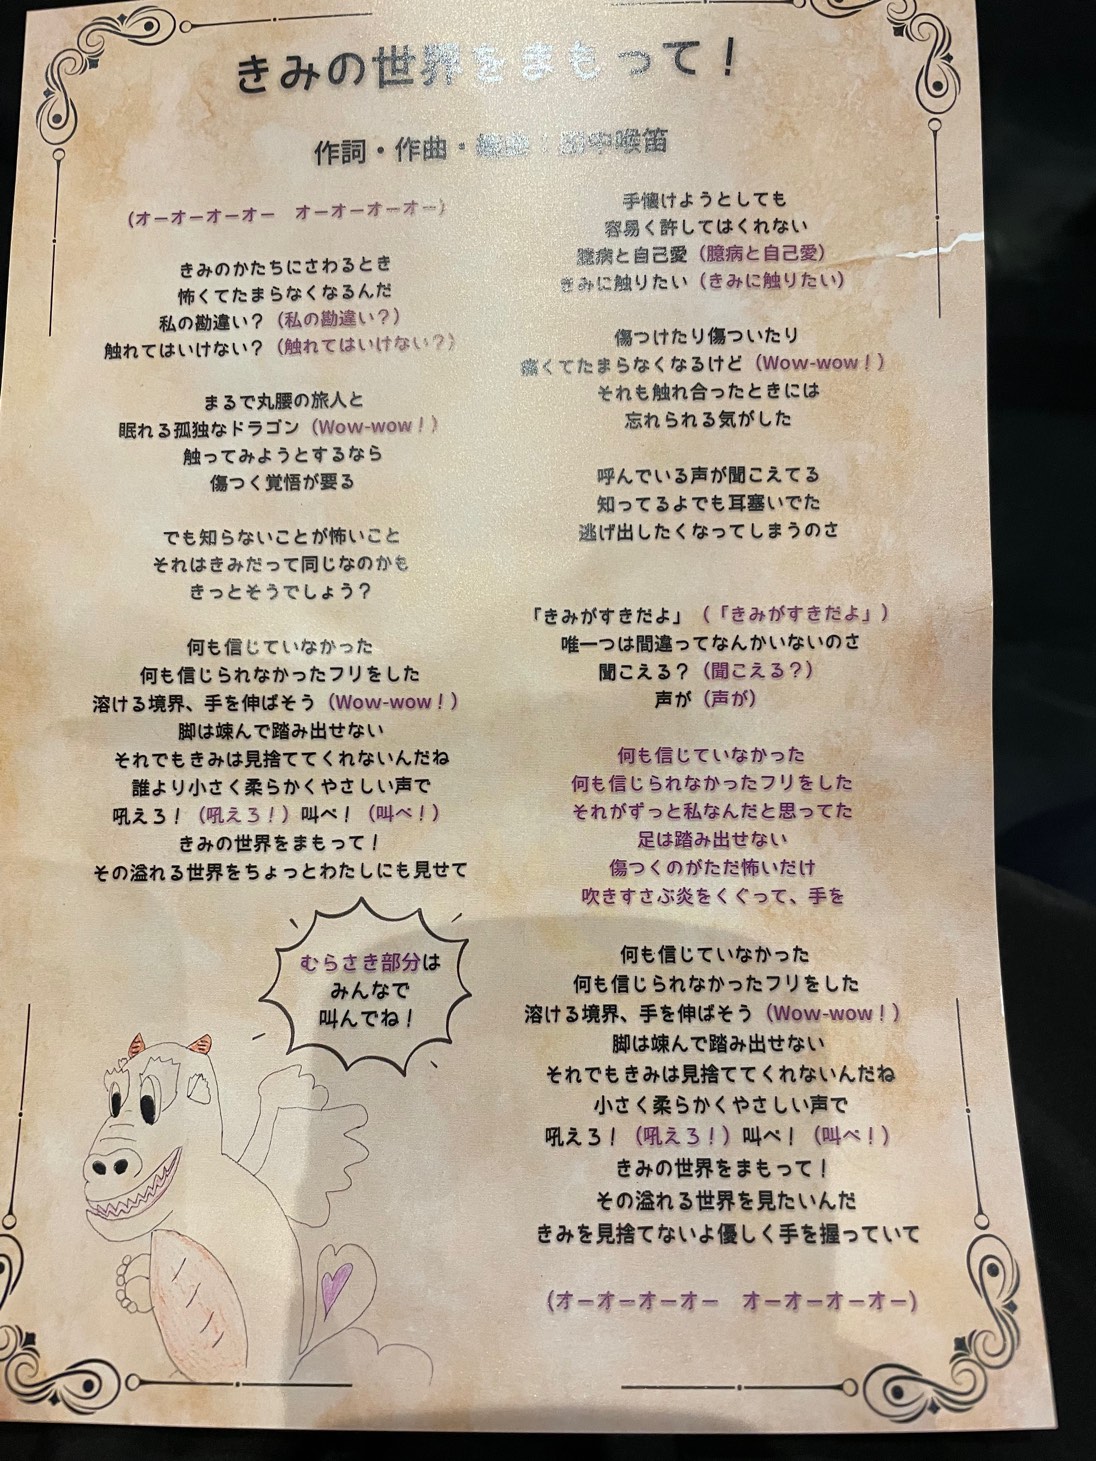 きみの世界をまもって！
作詞・作曲・編曲：田中喉笛
(オーオーオーオー　オーオーオーオー)
きみのかたちにさわるとき
怖くてたまらなくなるんだ
私の勘違い？（私の勘違い？）
触れてはいけない？（触れてはいけない？）
まるで丸腰の旅人と
眠れる孤独なドラゴン（Wow-wow！）
触ってみようとするなら
傷つく覚悟が要る
でも知らないことが怖いこと
それはきみだって同じなのかも
きっとそうでしょう？
何も信じていなかった
何も信じられなかったフリをした
溶ける境界、手を伸ばそう（Wow-wow！）
脚は竦んで踏み出せない
それでもきみは見捨ててくれないんだね
誰より小さく柔らかくやさしい声で
吼えろ！（吼えろ！）叫べ！（叫べ！）
きみの世界をまもって！
その溢れる世界をちょっとわたしにも見せて
むらさき部分は
みんなで
叫んでね！
手懐けようとしても
容易く許してはくれない
臆病と自己愛（臆病と自己愛）
きみに触りたい（きみに触りたい）
傷つけたり傷ついたり
痛くてたまらなくなるけど（Wow-wow！）
それも触れ合ったときには
忘れられる気がした
呼んでいる声が聞こえてる
知ってるよでも耳塞いでた
逃げ出したくなってしまうのさ
「きみがすきだよ」（「きみがすきだよ」）
唯一つは間違ってなんかいないのさ
聞こえる？（聞こえる？）
声が（声が）
何も信じていなかった
何も信じられなかったフリをした
それがずっと私なんだと思ってた
足は踏み出せない
傷つくのがただ怖いだけ
吹きすさぶ炎をくぐって、手を
何も信じていなかった
何も信じられなかったフリをした
溶ける境界、手を伸ばそう（Wow-wow！）
脚は竦んで踏み出せない
それでもきみは見捨ててくれないんだね
小さく柔らかくやさしい声で
吼えろ！（吼えろ！）叫べ！（叫べ！）
きみの世界をまもって！
その溢れる世界を見たいんだ
きみを見捨てないよ優しく手を握っていて
(オーオーオーオー　オーオーオーオー)